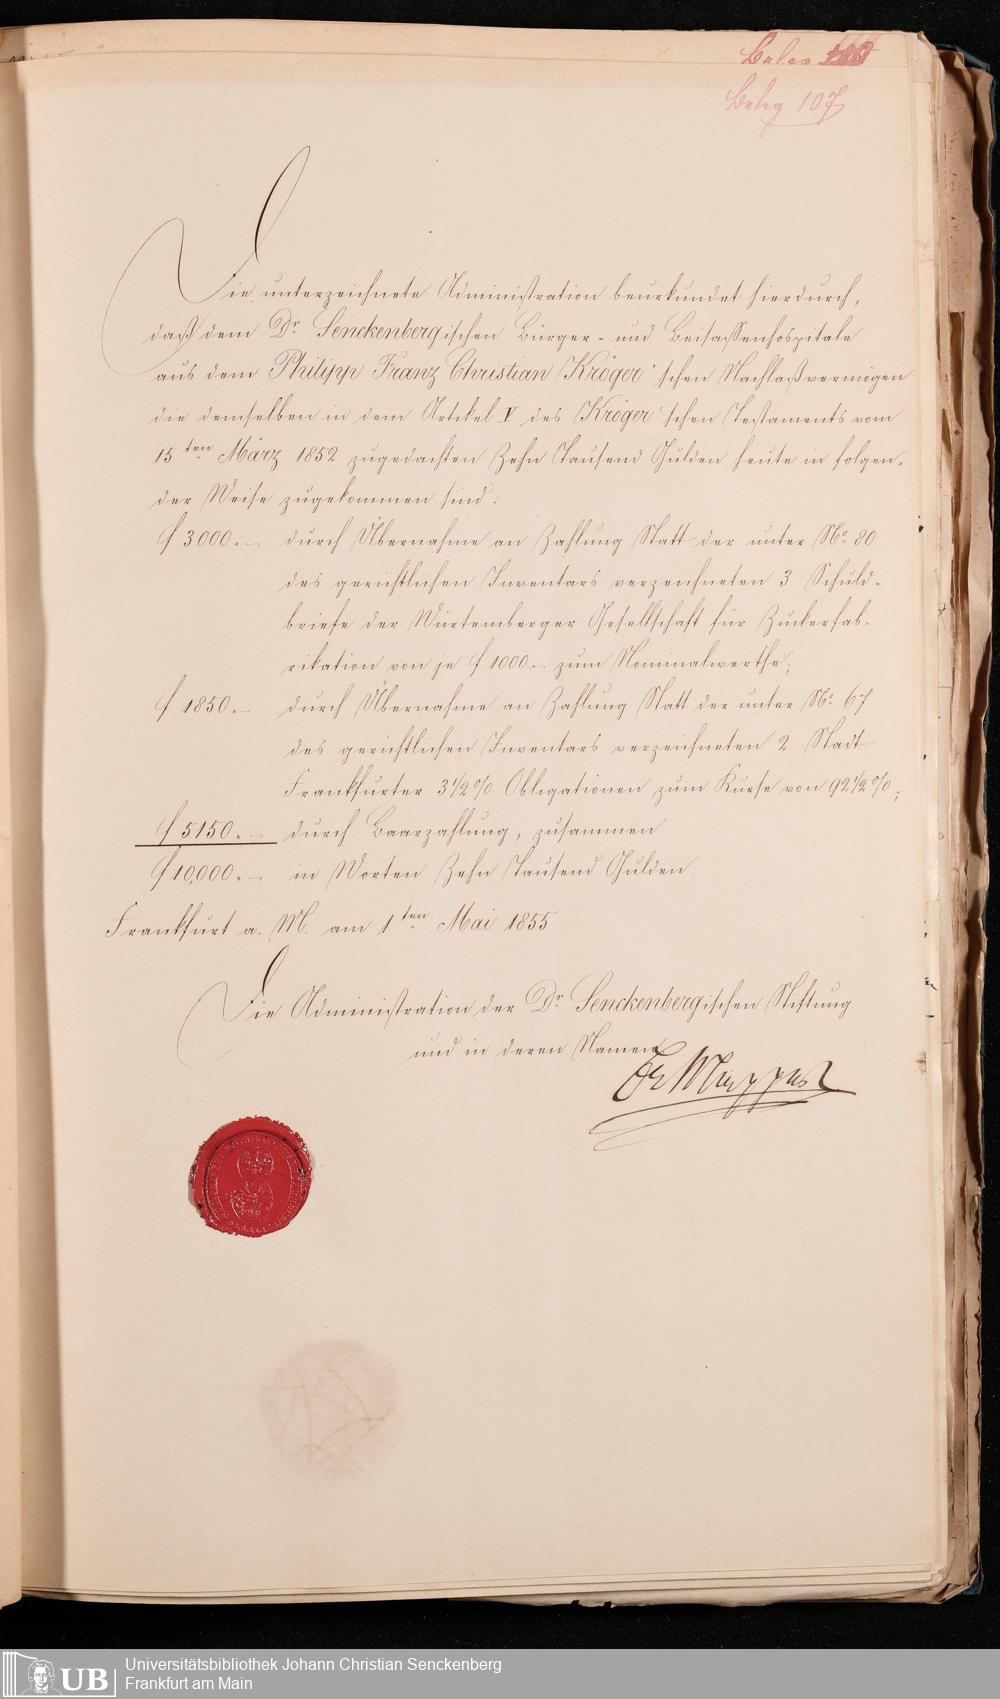 Beleg
Beleg 107
Die unterzeichnete Administration beurkundet hierdurch,
daß dem Dr. Senckenbergischen Bürger- und Beisassenhospitale
aus dem Philipp Franz Christian Kröger'schen Nachlaßvermögen
die demselben in dem Artikel IV des Kröger'schen Testaments vom
15ten März 1852 zugedachten Zehn Tausend Gulden heute in folgen-
der Weise zugekommen sind:
f 3000.– durch Übernahme an Zahlung Statt der unter No. 80
des gerichtlichen Inventars verzeichneten 3 Schuld-
briefe der Würtemberger Gesellschaft für Zuckerfab-
rikation von je f 1000.– zum Nominalwerthe;
f 1850.– durch Übernahme an Zahlung Statt der unter No. 67
des gerichtlichen Inventars verzeichneten 2 Stadt
Frankfurter 3 1/2 % Obligationen zum Kurse von 92 1/2 %;
f 5150.– durch Baarzahlung, zusammen
f 10,000.– in Worten Zehn Tausend Gulden.
Frankfurt a. M. am 1ten Mai 1855.
Die Administration der Dr. Senckenbergischen Stiftung
und in deren Namen
UB
Universitätsbibliothek Johann Christian Senckenberg
Frankfurt am Main